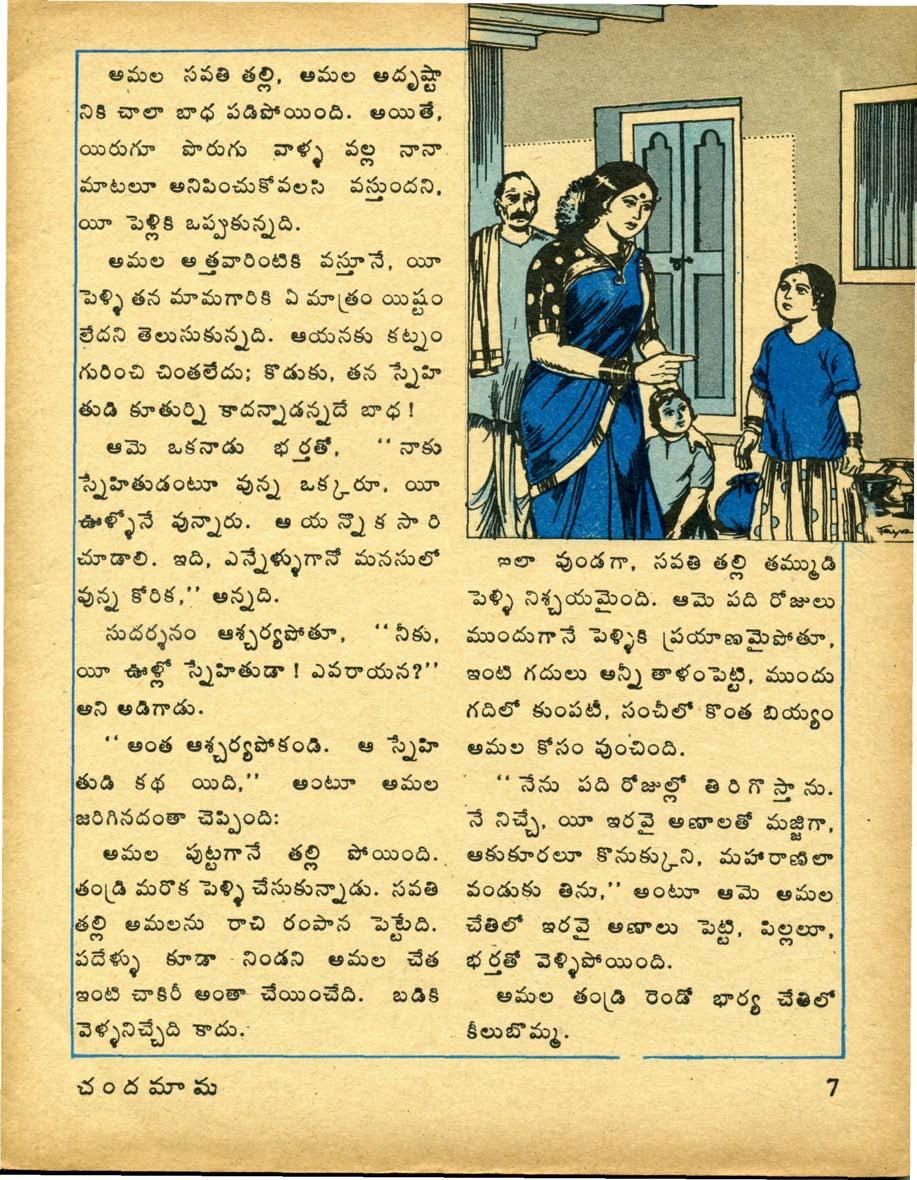 అమల సవతి తల్లి, అమల అదృష్టా
నికి చాలా బాధ పడిపోయింది. అయితే,
యిరుగూ పొరుగు వాళ్ళ వల్ల నానా
మాటలూ అనిపించుకోవలసి వస్తుందని,
యీ పెళ్లికి ఒప్పుకున్నది.
అమల అత్తవారింటికి వస్తూనే, యీ
పెళ్ళి తన మామగారికి ఏ మాత్రం యిష్టం
లేదని తెలుసుకున్నది. ఆయనకు కట్నం
గురించి చింతలేదు; కొడుకు, తన స్నేహి
తుడి కూతుర్ని కాదన్నాడన్నదే బాధ !
ఆమె ఒకనాడు భర్తతో, ‘‘ నాకు
స్నేహితుడంటూ వున్న ఒక్కరూ, యీ
ఊళ్ళోనే వున్నారు. ఆ య న్నొ క సా రి
చూడాలి. ఇది, ఎన్నేళ్ళుగానో మనసులో
వున్న కోరిక,’’ అన్నది.
సుదర్శనం ఆశ్చర్యపోతూ, ‘‘ నీకు,
యీ ఊళ్లో స్నేహితుడా ! ఎవరాయన?’’
అని అడిగాడు.
‘‘ అంత ఆశ్చర్యపోకండి. ఆ స్నేహి
తుడి కథ యిది,’’ అంటూ అమల
జరిగినదంతా చెప్పింది:
అమల పుట్టగానే తల్లి పోయింది.
తండ్రి మరొక పెళ్ళి చేసుకున్నాడు. సవతి
తల్లి అమలను రాచి రంపాన పెట్టేది.
పదేళ్ళు కూడా నిండని అమల చేత
ఇంటి చాకిరీ అంతా చేయించేది. బడికి
వెళ్ళనిచ్చేది కాదు.
ఇలా వుండగా, సవతి తల్లి తమ్ముడి
పెళ్ళి నిశ్చయమైంది. ఆమె పది రోజులు
ముందుగానే పెళ్ళికి ప్రయాణమైపోతూ,
ఇంటి గదులు అన్నీ తాళంపెట్టి, ముందు
గదిలో కుంపటీ, సంచీలో కొంత బియ్యం
అమల కోసం వుంచింది.
‘‘ నేను పది రోజుల్లో తి రి గొ స్తా ను.
నే నిచ్చే, యీ ఇరవై అణాలతో మజ్జిగా,
ఆకుకూరలూ కొనుక్కుని, మహారాణిలా
వండుకు తిను,’’ అంటూ ఆమె అమల
చేతిలో ఇరవై అణాలు పెట్టి, పిల్లలూ,
భర్తతో వెళ్ళిపోయింది.
అమల తండ్రి రెండో భార్య చేతిలో
కీలుబొమ్మ.
చందమామ
7